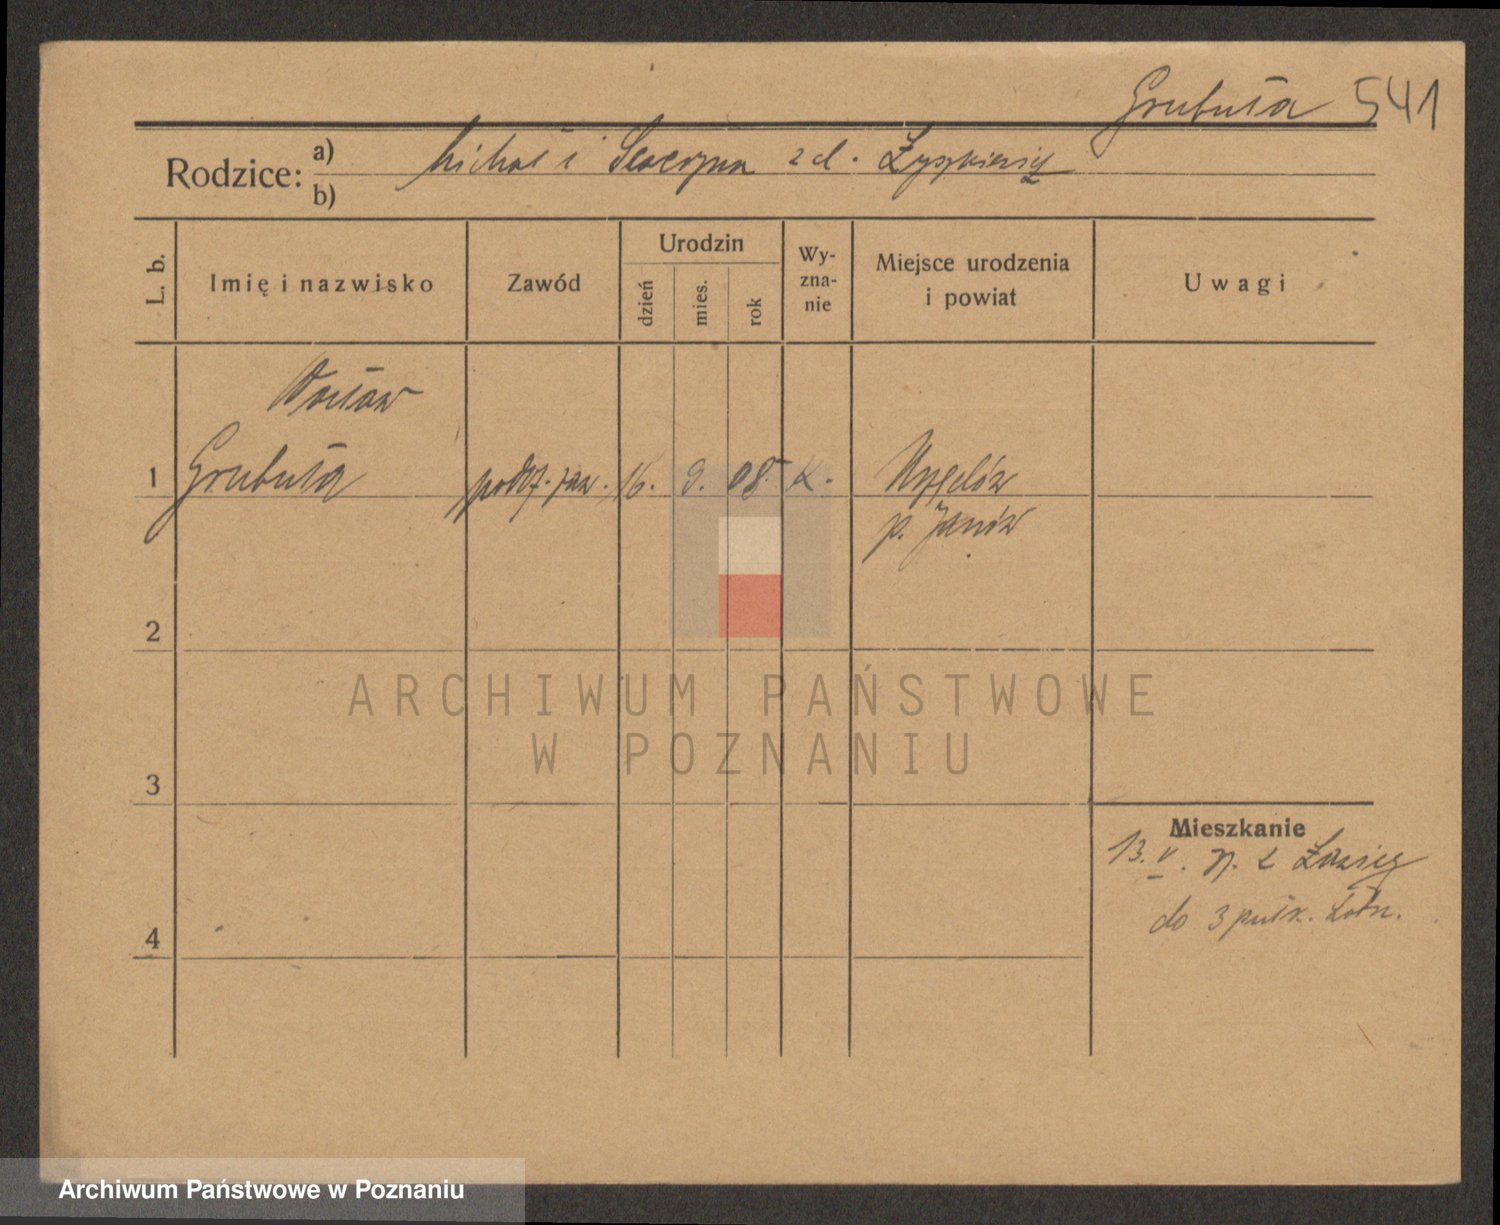 Grubuła 541
Rodzice: a) Michał i Seweryna z d. Łyszkiewicz
b)
L. b. Imię i nazwisko Zawód Urodzin dzień mies. rok Wy-zna-nie Miejsce urodzenia i powiat Uwagi
Wacław
1 Grubuła podof. zaw. 16. 9. 08. k.
p. Janów
2
3
4
Mieszkanie
13. V. z
do 3 pułk. Lotn.
ARCHIWUM PAŃSTWOWE
W POZNANIU
Archiwum Państwowe w Poznaniu